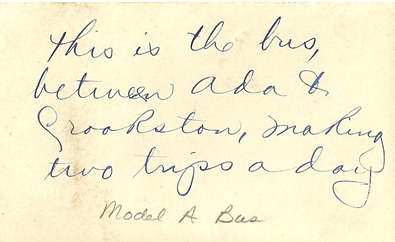 this is the bus,
between Ada &
Crookston, making
two trips a day
Model A Bus